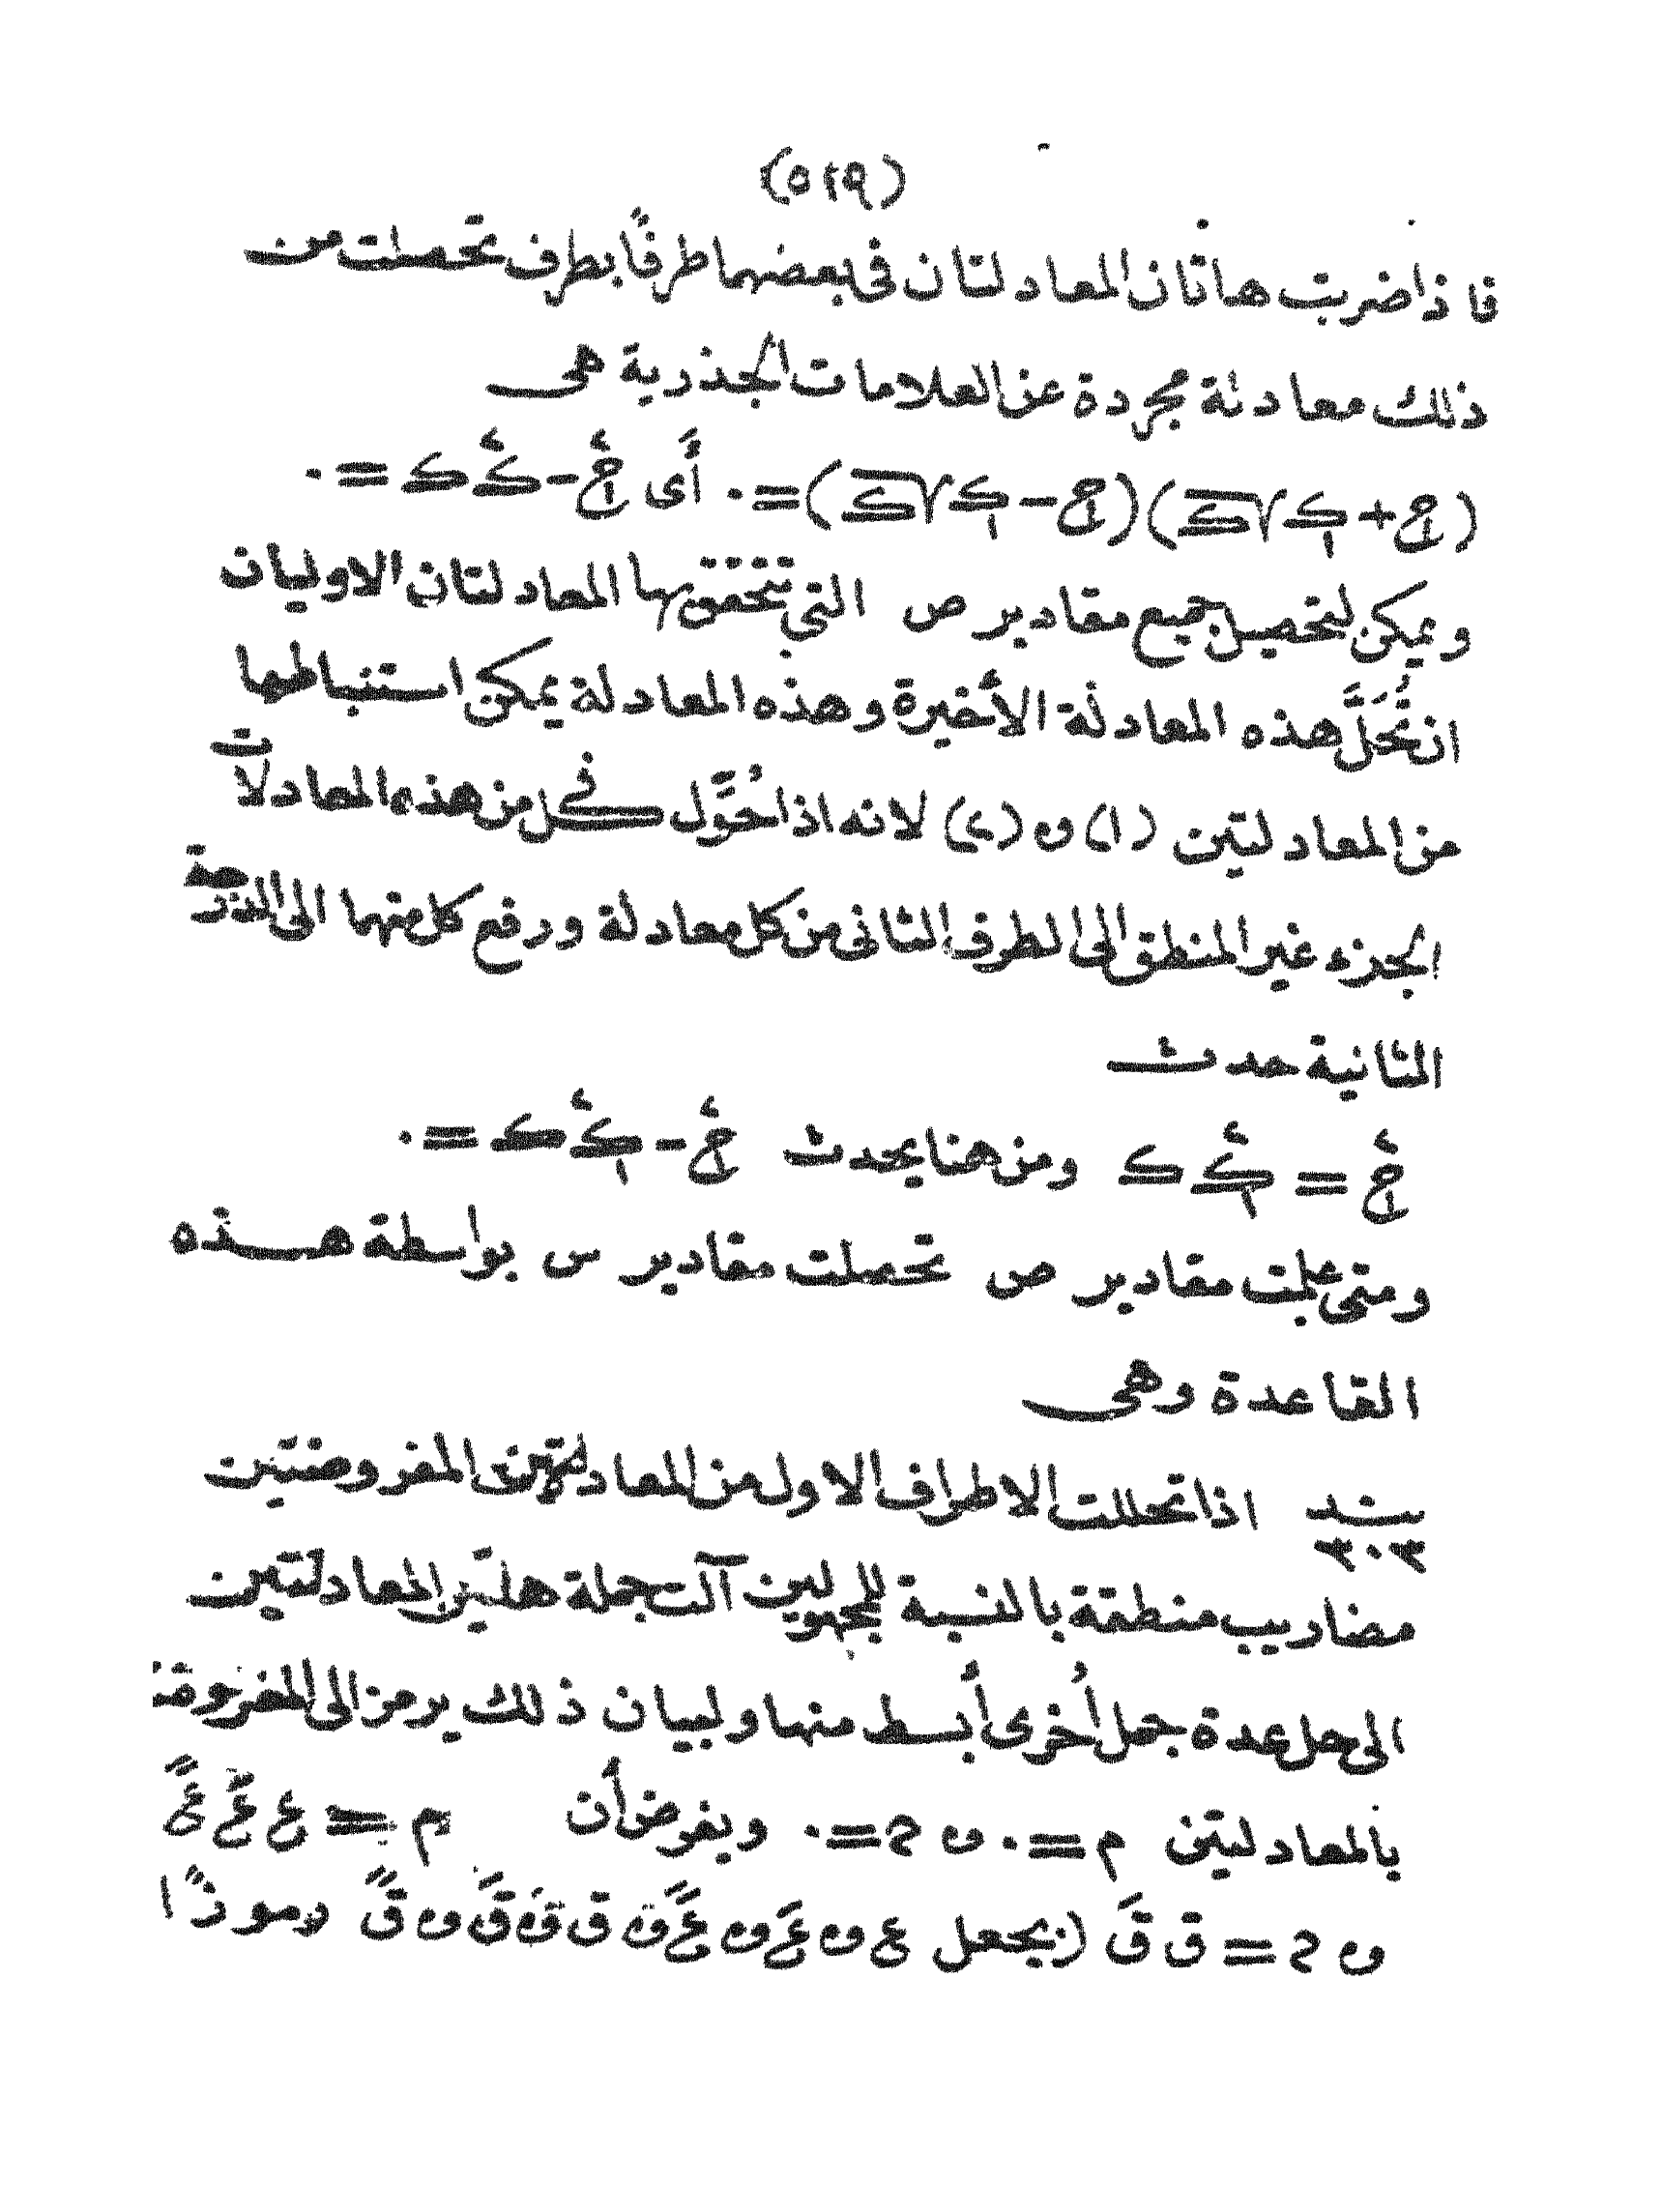 (٥٢٩)
فاذا ضربت هاتان المعادلتان فى بعضهما طرفًا بطرف تحصلت من
ذلك معادلة مجردة عن العلامات الجذرية هى
(ج + ك√ك)(ج - ك√ك) = ٠ أى ج٢ - ك٢ ك = ٠
ويمكن لتحصيل جميع مقادير ص التى تتحقق بها المعادلتان الاوليان
ان تُحَلَّ هذه المعادلة الأخيرة وهذه المعادلة يمكن استنباطها
من المعادلتين (١) و (٢) لانه اذا حُوِّل فى كل من هذه المعادلات
الجزء غير المنطق الى الطرف الثانى من كل معادلة ورفع كل منهما الى الدرجة
الثانية حدث
ج٢ = ك٢ ك ومن هنا يحدث ج٢ - ك٢ ك = ٠
ومتى علمت مقادير ص تحصلت مقادير س بواسطة هذه
القاعدة وهى
بند ٣٠٣ اذا تحللت الاطراف الاول من المعادلتين المفروضتين
مضاريب منطقة بالنسبة للمجهولين آلت جملة هاتين المعادلتين
الى حل عدة جمل أُخرى أبسط منها ولبيان ذلك يرمز الى المفروضة
بالمعادلتين م = ٠ و ح = ٠ ويفرض أن م = ع عَ عً
و ح = ق قَ (بجعل ع و عَ و عً و ق و قَ و قً رموزًا